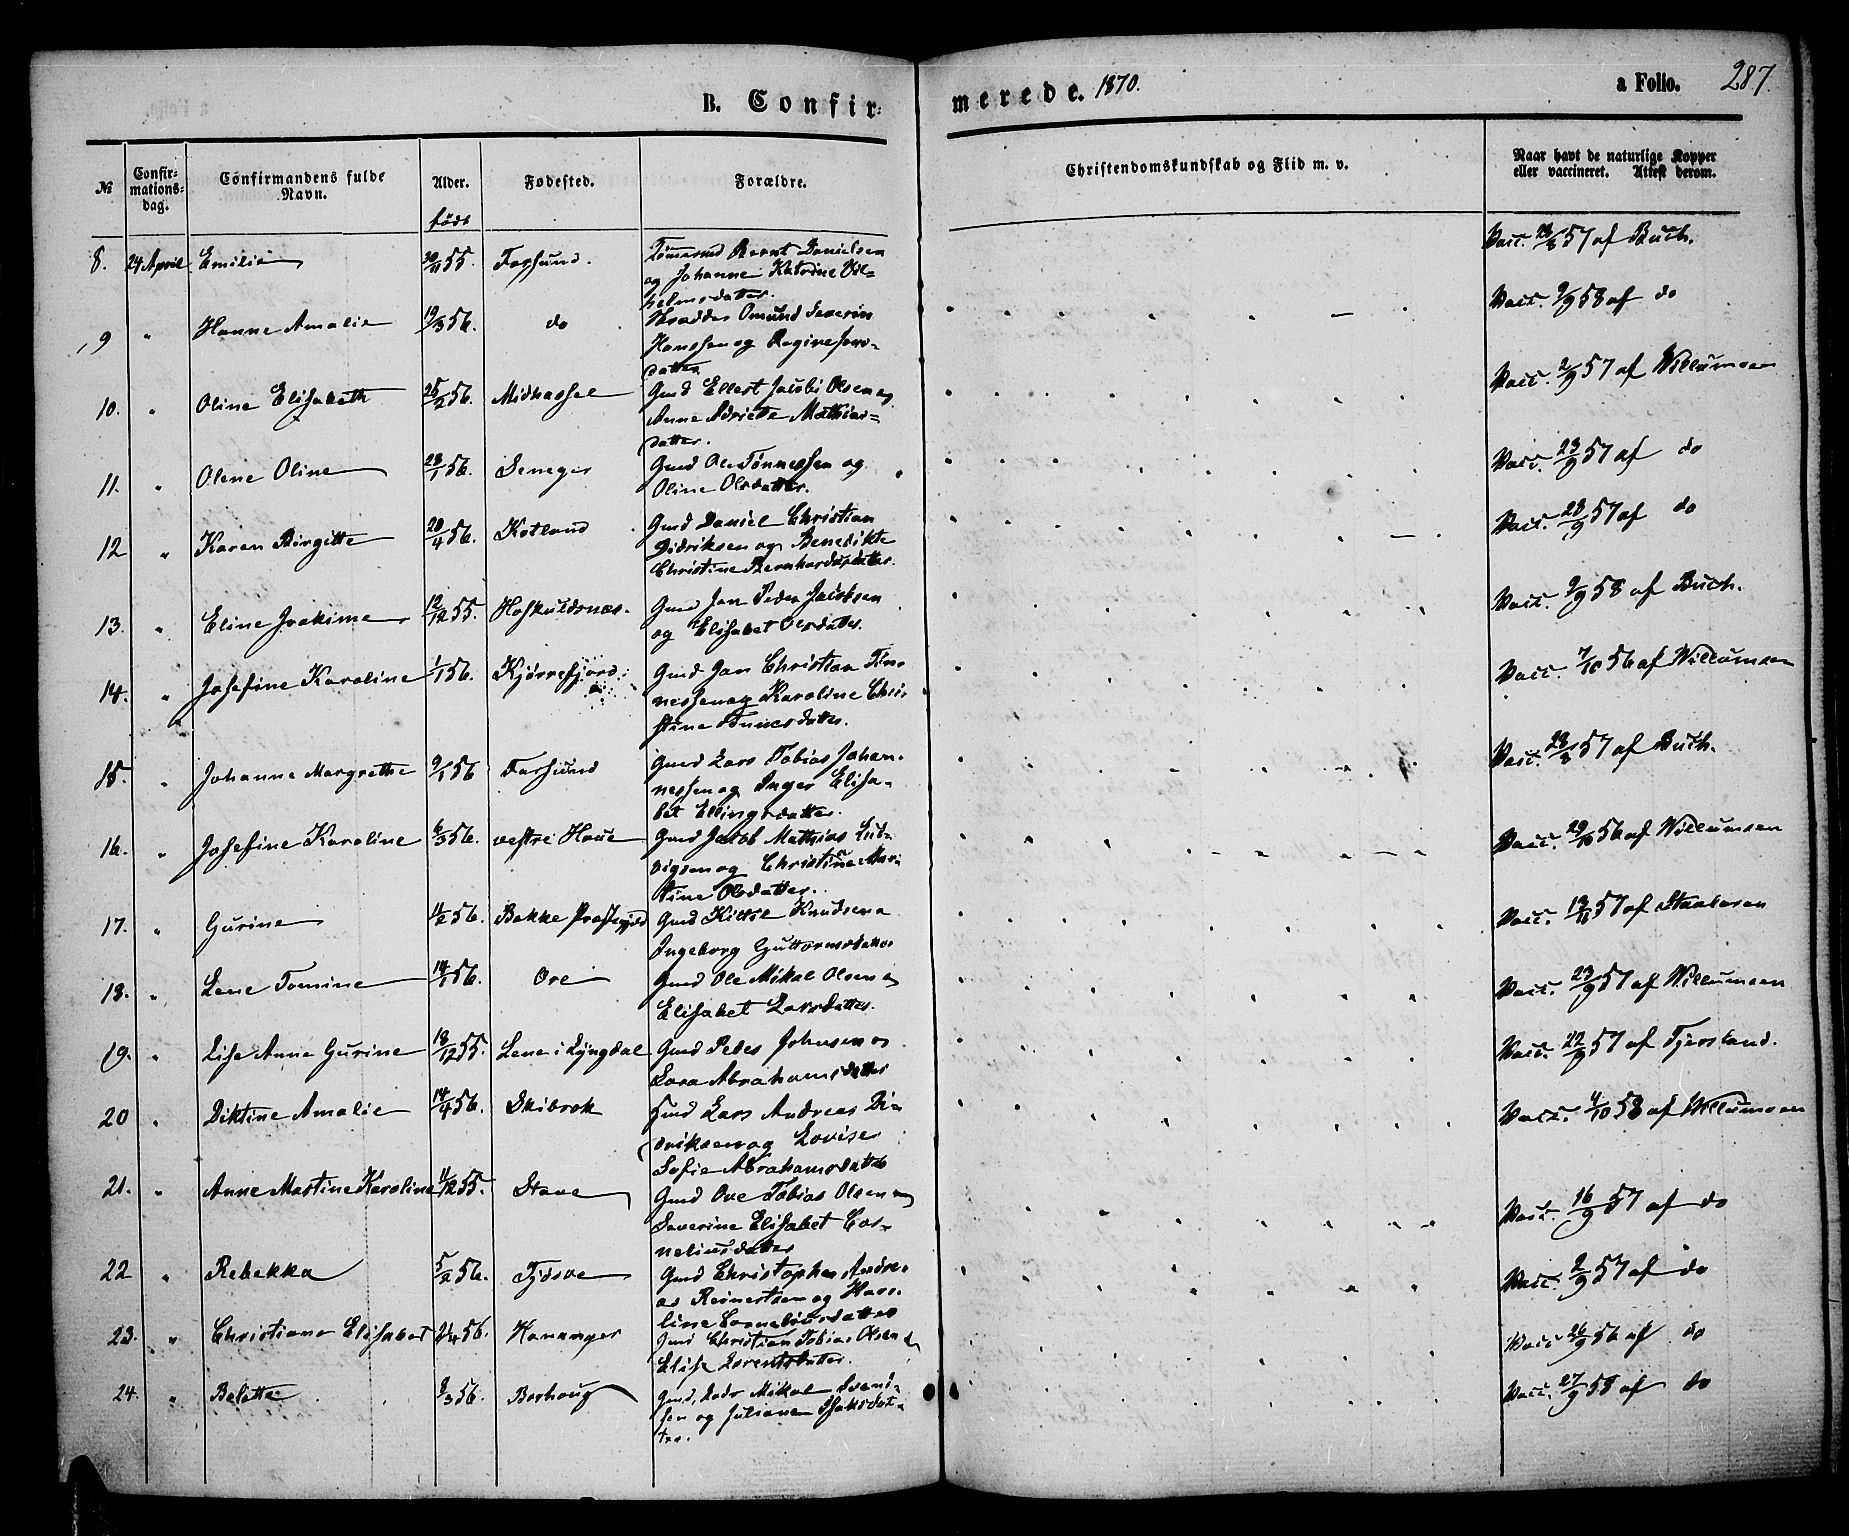 B. Confir=
merede. 1870.
a Folio. 287.
№
Confir-
mations-
dag.
Confirmandens fulde
Navn.
Alder.
født
Fødested.
Forældre.
Christendomskundskab og Flid m. v.
Naar havt de naturlige Kopper
eller vaccineret. Attest derom.
8. 24 April Emilie 55. Farsund. Bernt Danielsen
og Johanne Katrine Vil=
helmsdatter. Vacc. 57 af Buch.
9 " Hanne Amalie 19/3 56. do Skrædder Omund Severin
Hanssen og Regine
datter. Vacc. 9/9 58 af do
10. " Oline Elisabeth 25/2 56. Midhassel Gmd Ellert Jacob Olsen og
Anne Mathias=
datter. Vacc. 2/9 57 af Willumsen
11. " Olene Oline 23/1 56. Gmd Ole Tønnessen og
Oline Olsdatter. Vacc. 23/9 57 af do
12 " Karen Birgitte 20/4 56. Kotland Gmd Daniel Christian
Didriksen og Benedikte
Christine Bernhardsdatter. Vacc. 23/9 57 af do
13. " Eline Joakime 12/12 55. Hoskuldsnæs. Gmd Jan Peder Jacobsen
og Elisabet Olsdatter. Vacc. 9/9 58 af Buch.
14. " Josefine Karoline 1/1 56. Kjørrefjord Gmd Jan Christian Tøn-
nessen og Karoline Chri-
stine Tønnesdatter. Vacc. 7/10 56 af Willumsen
15. " Johanne Margrethe 9/1 56 Farsund Gmd Lars Tobias Johan-
nessen og Inger Elisa-
bet Ellingsdatter. Vacc. 28/8 57 af Buch.
16. " Josefine Karoline 6/3 56. vestre Haue Gmd Jacob Mathias Lud-
vigsen og Christine Mar-
tine Olsdatter. Vacc. 29/10 56 af Willumsen
17. " Gurine 11/2 56. Bakke Præstegjeld Gmd Kittel Knudsen og
Ingeborg Guttormsdatter Vacc. 57 af Staalesen
18. " Lene Tomine 14/1 56. Ore Gmd Ole Mikal Olsen og
Elisabet Larsdatter. Vacc. 23/9 57 af Willumsen
19. " Lise Anne Gurine 18/12 55. Lene i Lyngdal Gmd Peder Johnsen og
Sara Abrahamsdatter Vacc. 22/9 57 af Tjersland.
20 " Diktine Amalie 14/4 56. Skibrok Gmd Lars Andreas Di-
driksen og Lovise
Sofie Abrahamsdatter Vacc. 4/10 58 af Willumsen
21. " Anne Martine Karoline 11/12 55. Stave Gmd Ove Tobias Olsen og
Severine Elisabet Cor-
neliusdatter Vacc. 16/9 57 af do
22 " Rebekka 5/2 56. Tjdsve Gmd Christopher Andre-
as Reinertsen og Karo-
line Corneliusdatter Vacc. 2/9 57 af do
23. " Christiane Elisabet 56. Hananger Gmd Christian Tobias Olsen og
Elise Lorentsdatter. Vacc 26/9 56 af do
24. " Belette 56. Borhoug Gmd. Mikal Svend-
sen og Juliane Isaksdat-
ter. Vacc. 27/9 58 af do